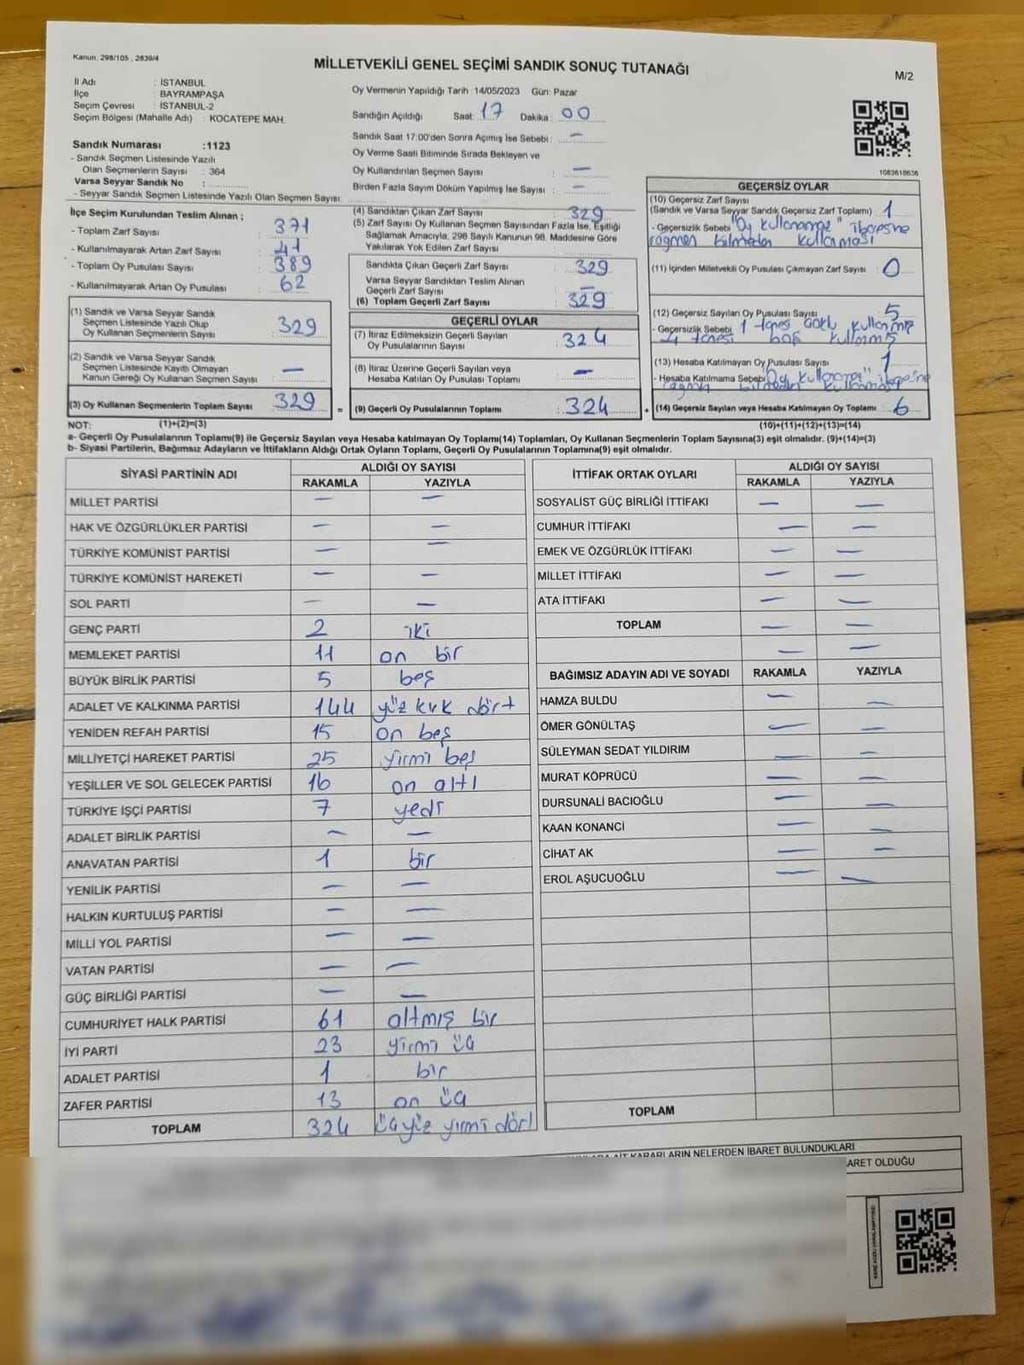 Kanun: 298/105 , 2839/4
MİLLETVEKİLİ GENEL SEÇİMİ SANDIK SONUÇ TUTANAĞI
M/2
İl Adı : İSTANBUL
İlçe : BAYRAMPAŞA
Seçim Çevresi : İSTANBUL-2
Seçim Bölgesi (Mahalle Adı) : KOCATEPE MAH.
Sandık Numarası :1123
- Sandık Seçmen Listesinde Yazılı
Olan Seçmenlerin Sayısı : 364
Varsa Seyyar Sandık No :
- Seyyar Sandık Seçmen Listesinde Yazılı Olan Seçmen Sayısı:
Oy Vermenin Yapıldığı Tarih :14/05/2023 Gün: Pazar
Sandığın Açıldığı Saat: 17 Dakika: 00
Sandık Saat 17:00'den Sonra Açımış İse Sebebi : —
Oy Verme Saati Bitiminde Sırada Bekleyen ve
Oy Kullandırılan Seçmen Sayısı : —
Birden Fazla Sayım Döküm Yapılmış İse Sayısı : —
1083618636
İlçe Seçim Kurulundan Teslim Alınan ;
- Toplam Zarf Sayısı : 371
- Kullanılmayarak Artan Zarf Sayısı : 41
- Toplam Oy Pusulası Sayısı : 389
- Kullanılmayarak Artan Oy Pusulası : 62
(1) Sandık ve Varsa Seyyar Sandık
Seçmen Listesinde Yazılı Olup
Oy Kullanan Seçmenlerin Sayısı : 329
(2) Sandık ve Varsa Seyyar Sandık
Seçmen Listesinde Kayıtlı Olmayan
Kanun Gereği Oy Kullanan Seçmen Sayısı : —
(3) Oy Kullanan Seçmenlerin Toplam Sayısı : 329
(1)+(2)=(3)
(4) Sandıktan Çıkan Zarf Sayısı : 329
(5) Zarf Sayısı Oy Kullanan Seçmen Sayısından Fazla İse, Eşitliği
Sağlamak Amacıyla, 298 Sayılı Kanunun 98. Maddesine Göre
Yakılarak Yok Edilen Zarf Sayısı
Sandıkta Çıkan Geçerli Zarf Sayısı : 329
Varsa Seyyar Sandıktan Teslim Alınan
Geçerli Zarf Sayısı : —
(6) Toplam Geçerli Zarf Sayısı : 329
GEÇERLİ OYLAR
(7) İtiraz Edilmeksizin Geçerli Sayılan
Oy Pusulalarının Sayısı : 324
(8) İtiraz Üzerine Geçerli Sayılan veya
Hesaba Katılan Oy Pusulası Toplamı : —
= (9) Geçerli Oy Pusulalarının Toplamı : 324
GEÇERSİZ OYLAR
(10) Geçersiz Zarf Sayısı
(Sandık ve Varsa Seyyar Sandık Geçersiz Zarf Toplamı) : 1
- Geçersizlik Sebebi : "Oy kullanamaz" ibaresine
rağmen bilmeden kullanması
(11) İçinden Milletvekili Oy Pusulası Çıkmayan Zarf Sayısı : 0
(12) Geçersiz Sayılan Oy Pusulası Sayısı : 5
- Geçersizlik Sebebi : 1 tanesi çoklu kullanmış
4 tanesi boş kullanmış
(13) Hesaba Katılmayan Oy Pusulası Sayısı : 1
- Hesaba Katılmama Sebebi : "Oy kullanamaz" ibaresine
rağmen bilmeden kullanması
+ (14) Geçersiz Sayılan veya Hesaba Katılmayan Oy Toplamı : 6
(10)+(11)+(12)+(13)=(14)
NOT:
a- Geçerli Oy Pusulalarının Toplamı(9) ile Geçersiz Sayılan veya Hesaba katılmayan Oy Toplamı(14) Toplamları, Oy Kullanan Seçmenlerin Toplam Sayısına(3) eşit olmalıdır. (9)+(14)=(3)
b- Siyasi Partilerin, Bağımsız Adayların ve İttifakların Aldığı Ortak Oyların Toplamı, Geçerli Oy Pusulalarının Toplamına(9) eşit olmalıdır.
SİYASİ PARTİNİN ADI ALDIĞI OY SAYISI
RAKAMLA YAZIYLA
MİLLET PARTİSİ — —
HAK VE ÖZGÜRLÜKLER PARTİSİ — —
TÜRKİYE KOMÜNİST PARTİSİ — —
TÜRKİYE KOMÜNİST HAREKETİ — —
SOL PARTİ — —
GENÇ PARTİ 2 iki
MEMLEKET PARTİSİ 11 on bir
BÜYÜK BİRLİK PARTİSİ 5 beş
ADALET VE KALKINMA PARTİSİ 144 yüz kırk dört
YENİDEN REFAH PARTİSİ 15 on beş
MİLLİYETÇİ HAREKET PARTİSİ 25 yirmi beş
YEŞİLLER VE SOL GELECEK PARTİSİ 16 on altı
TÜRKİYE İŞÇİ PARTİSİ 7 yedi
ADALET BİRLİK PARTİSİ — —
ANAVATAN PARTİSİ 1 bir
YENİLİK PARTİSİ — —
HALKIN KURTULUŞ PARTİSİ — —
MİLLİ YOL PARTİSİ — —
VATAN PARTİSİ — —
GÜÇ BİRLİĞİ PARTİSİ — —
CUMHURİYET HALK PARTİSİ 61 altmış bir
İYİ PARTİ 23 yirmi üç
ADALET PARTİSİ 1 bir
ZAFER PARTİSİ 13 on üç
TOPLAM 324 üçyüz yirmi dört
İTTİFAK ORTAK OYLARI ALDIĞI OY SAYISI
RAKAMLA YAZIYLA
SOSYALİST GÜÇ BİRLİĞİ İTTİFAKI — —
CUMHUR İTTİFAKI — —
EMEK VE ÖZGÜRLÜK İTTİFAKI — —
MİLLET İTTİFAKI — —
ATA İTTİFAKI — —
TOPLAM — —
—
BAĞIMSIZ ADAYIN ADI VE SOYADI RAKAMLA YAZIYLA
HAMZA BULDU — —
ÖMER GÖNÜLTAŞ — —
SÜLEYMAN SEDAT YILDIRIM — —
MURAT KÖPRÜCÜ — —
DURSUNALİ BACIOĞLU — —
KAAN KONANCİ — —
CİHAT AK — —
EROL AŞUCUOĞLU — —
TOPLAM
KARARLARIN NELERDEN İBARET BULUNDUKLARI
ARET OLDUĞU